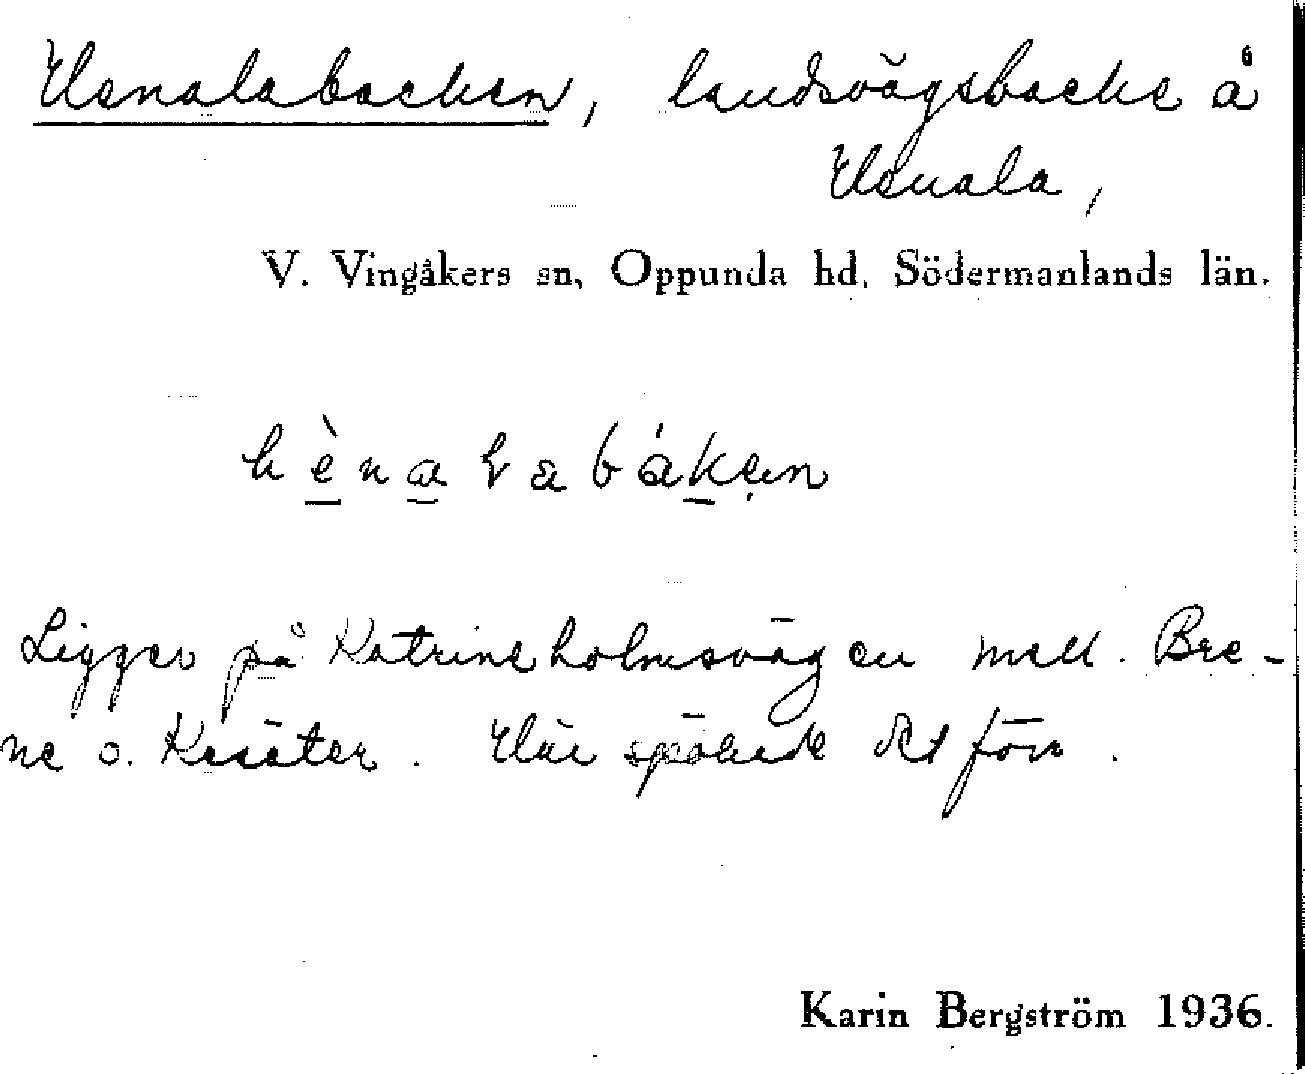 Henalabacken, landsvägsbacke å
Henala,
V. Vingåkers sn, Oppunda hd, Södermanlands län.
hènalabákən
Ligger på Katrineholmsvägen mell. Bre-
ne o. Kesäter. Här spökade det förr.
Karin Bergström 1936.